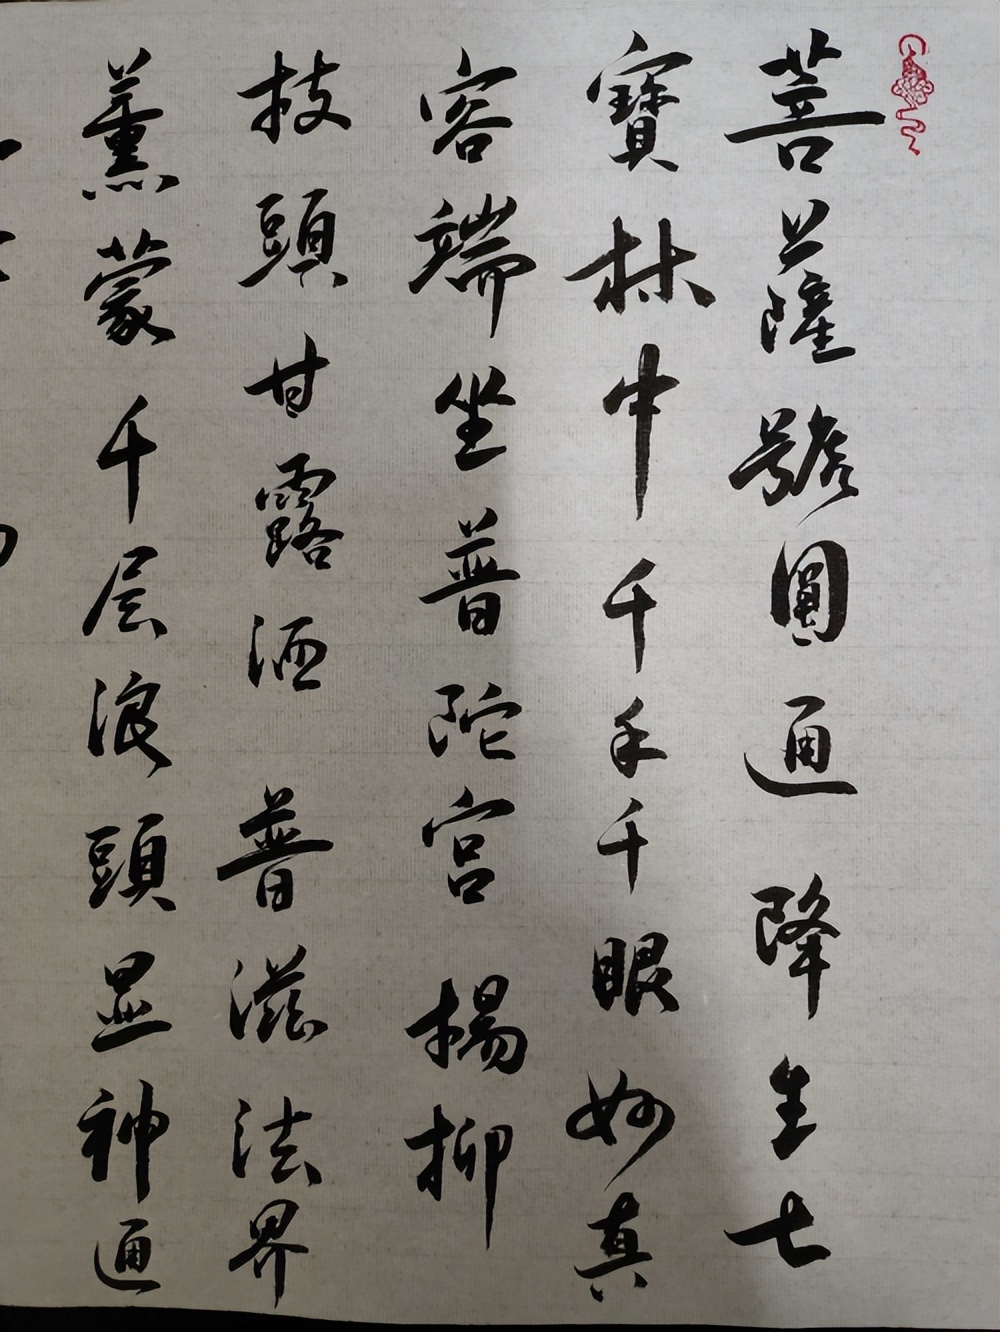 菩萨號圓通降生七
寶林中千手千眼妙真
容端坐普陀宫楊柳
枝頭甘露洒普滋法界
薰蒙千层浪頭显神通